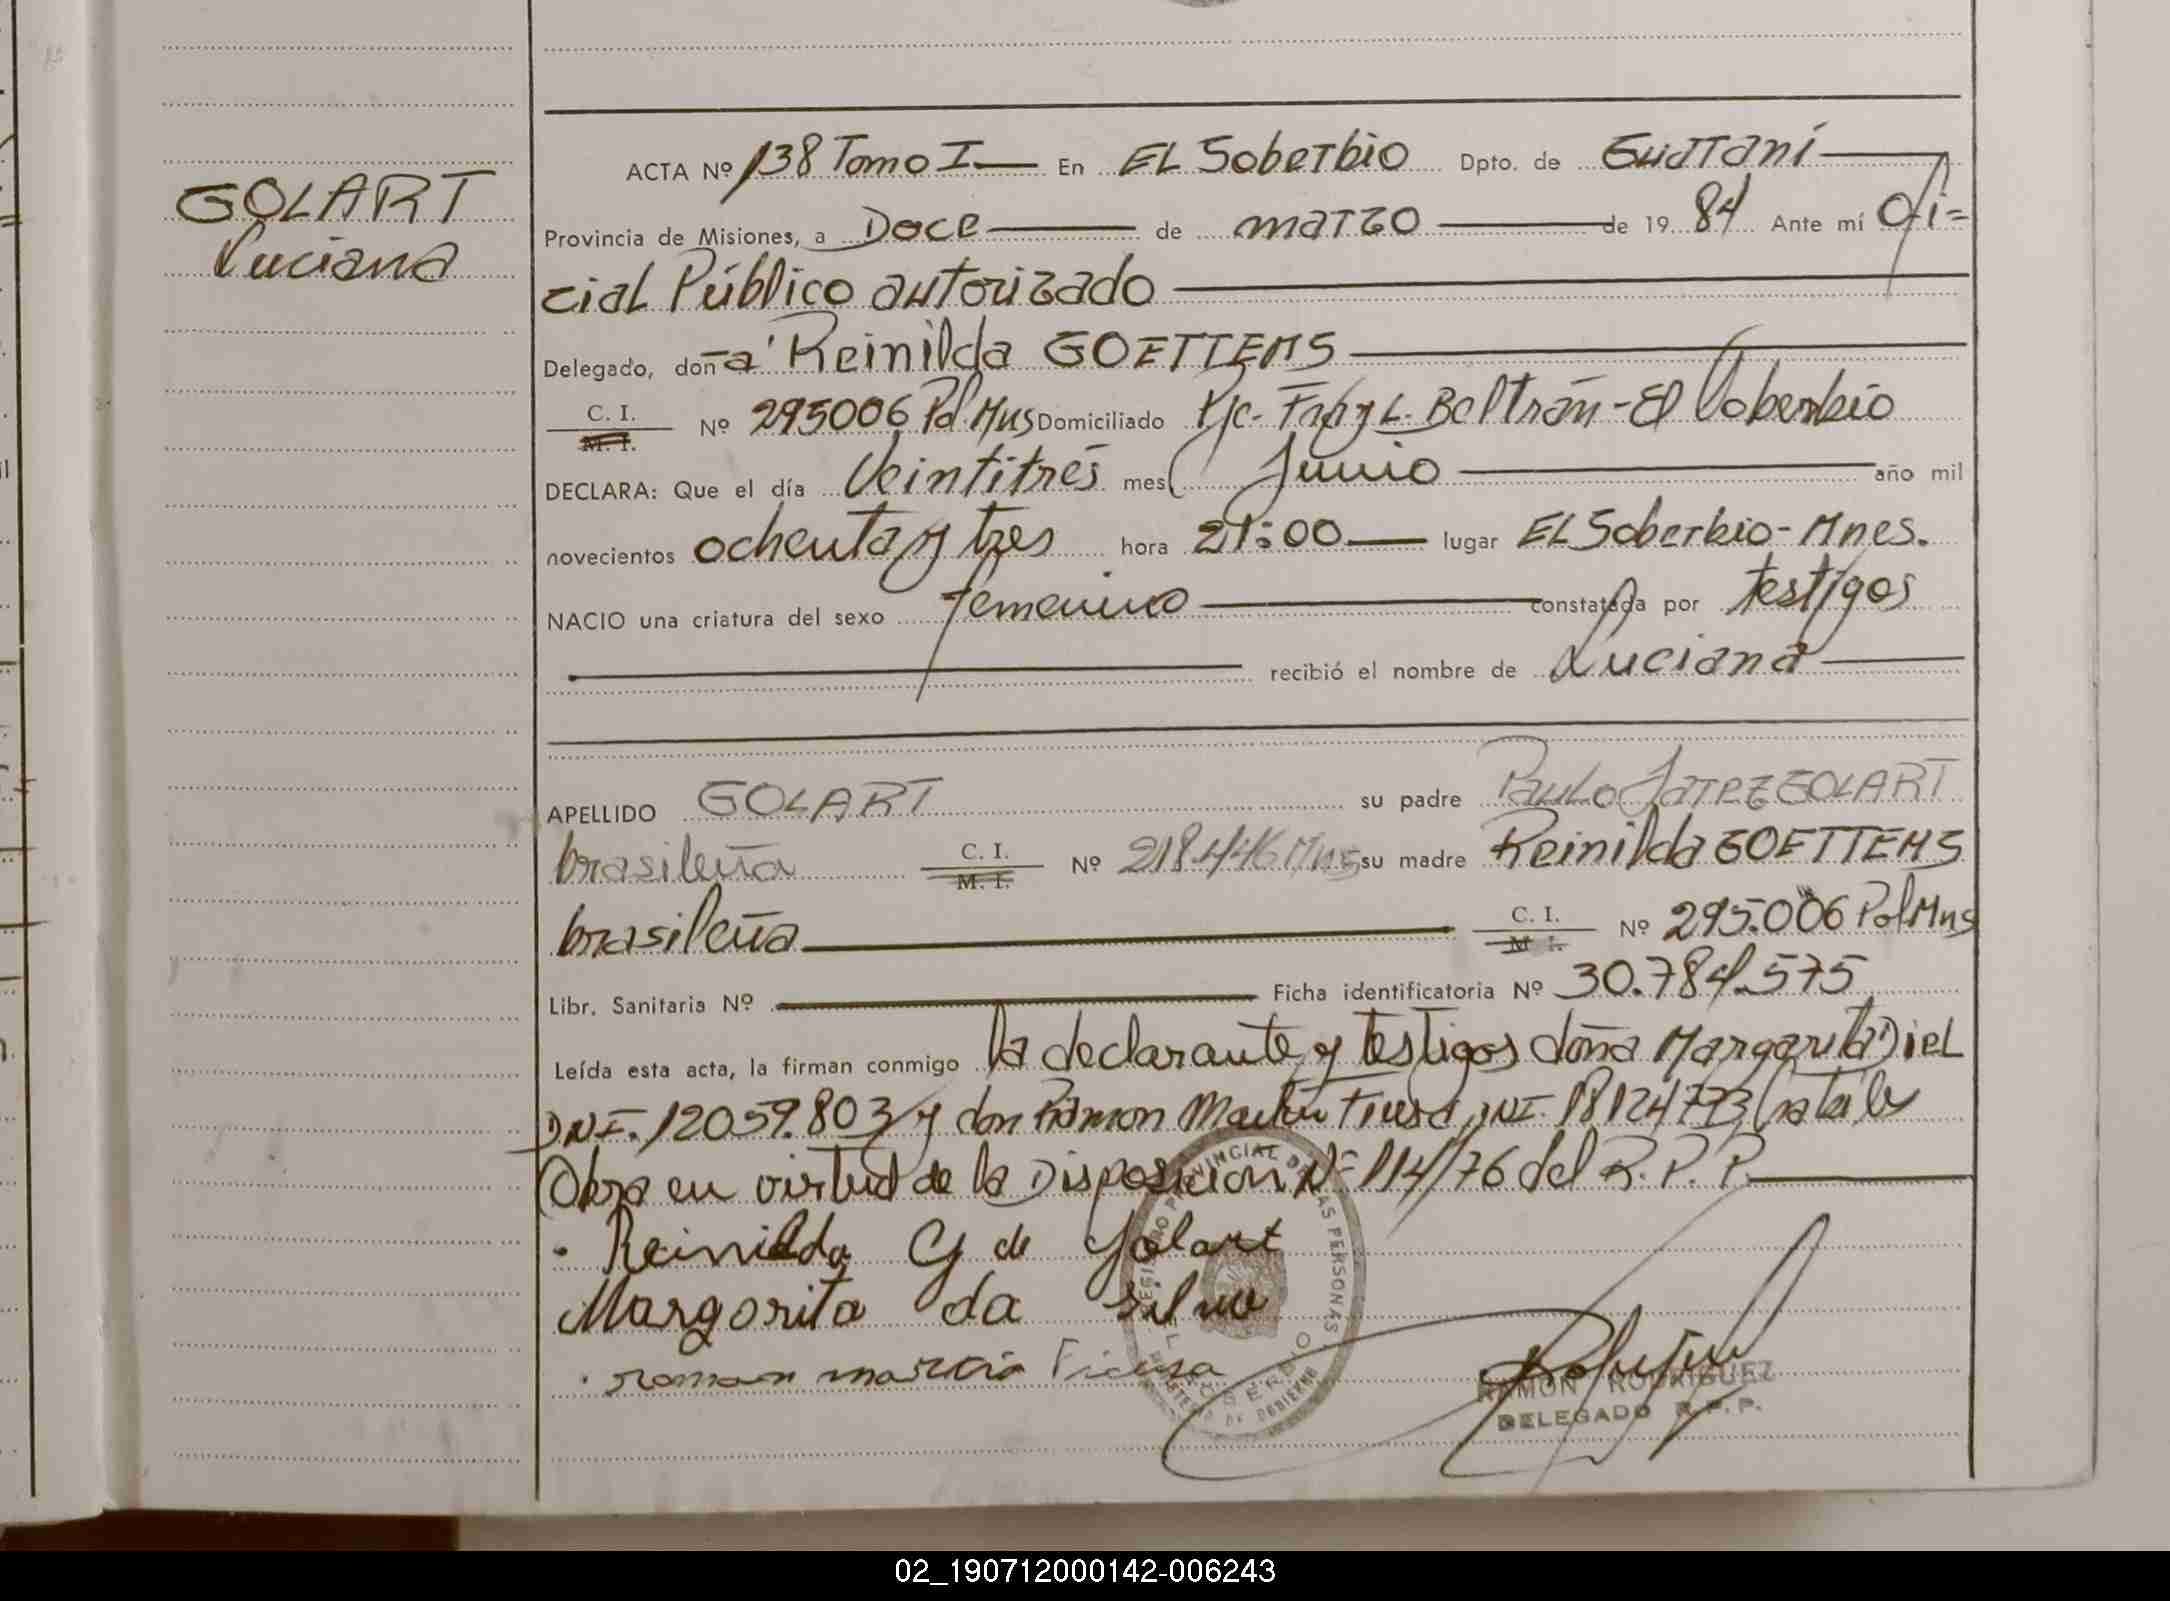 GOLART
Luciana
ACTA Nº 138 Tomo I En EL Soberbio Dpto. de Guaraní
Provincia de Misiones, a Doce de marzo de 19 84 Ante mí Ofi=
cial Público autorizado
Delegado, doña Reinilda GOETTEMS
C. I.
M. I.
Nº 295006 Pol Mns Domiciliado Pje. Fray L. Beltrán - El Soberbio
DECLARA: Que el día Veintitrés mes Junio año mil
novecientos ochenta y tres hora 21:00 lugar EL Soberbio - Mnes.
NACIO una criatura del sexo femenino constatada por testigos
recibió el nombre de Luciana
APELLIDO GOLART su padre Paulo GOLART
brasileña C. I. M. I. Nº 218.446 Mns su madre Reinilda GOETTEMS
brasileña C. I. M. I. Nº 295.006 Pol Mns
Libr. Sanitaria Nº Ficha identificatoria Nº 30.784.575
Leída esta acta, la firman conmigo la declarante y testigos doña Margarita Diel
DNI. 12059.803 y don Ramon Martin DNI. 18124773
Obra en virtud de la Disposicion Nº 114/76 del R. P. P.
Reinilda G de Golart
Margarita da Silva
Roman
REGISTRO PROVINCIAL DE LAS PERSONAS
EL SOBERBIO
MINISTERIO DE GOBIERNO
RAMON RODRIGUEZ
DELEGADO R.P.P.
02_190712000142-006243